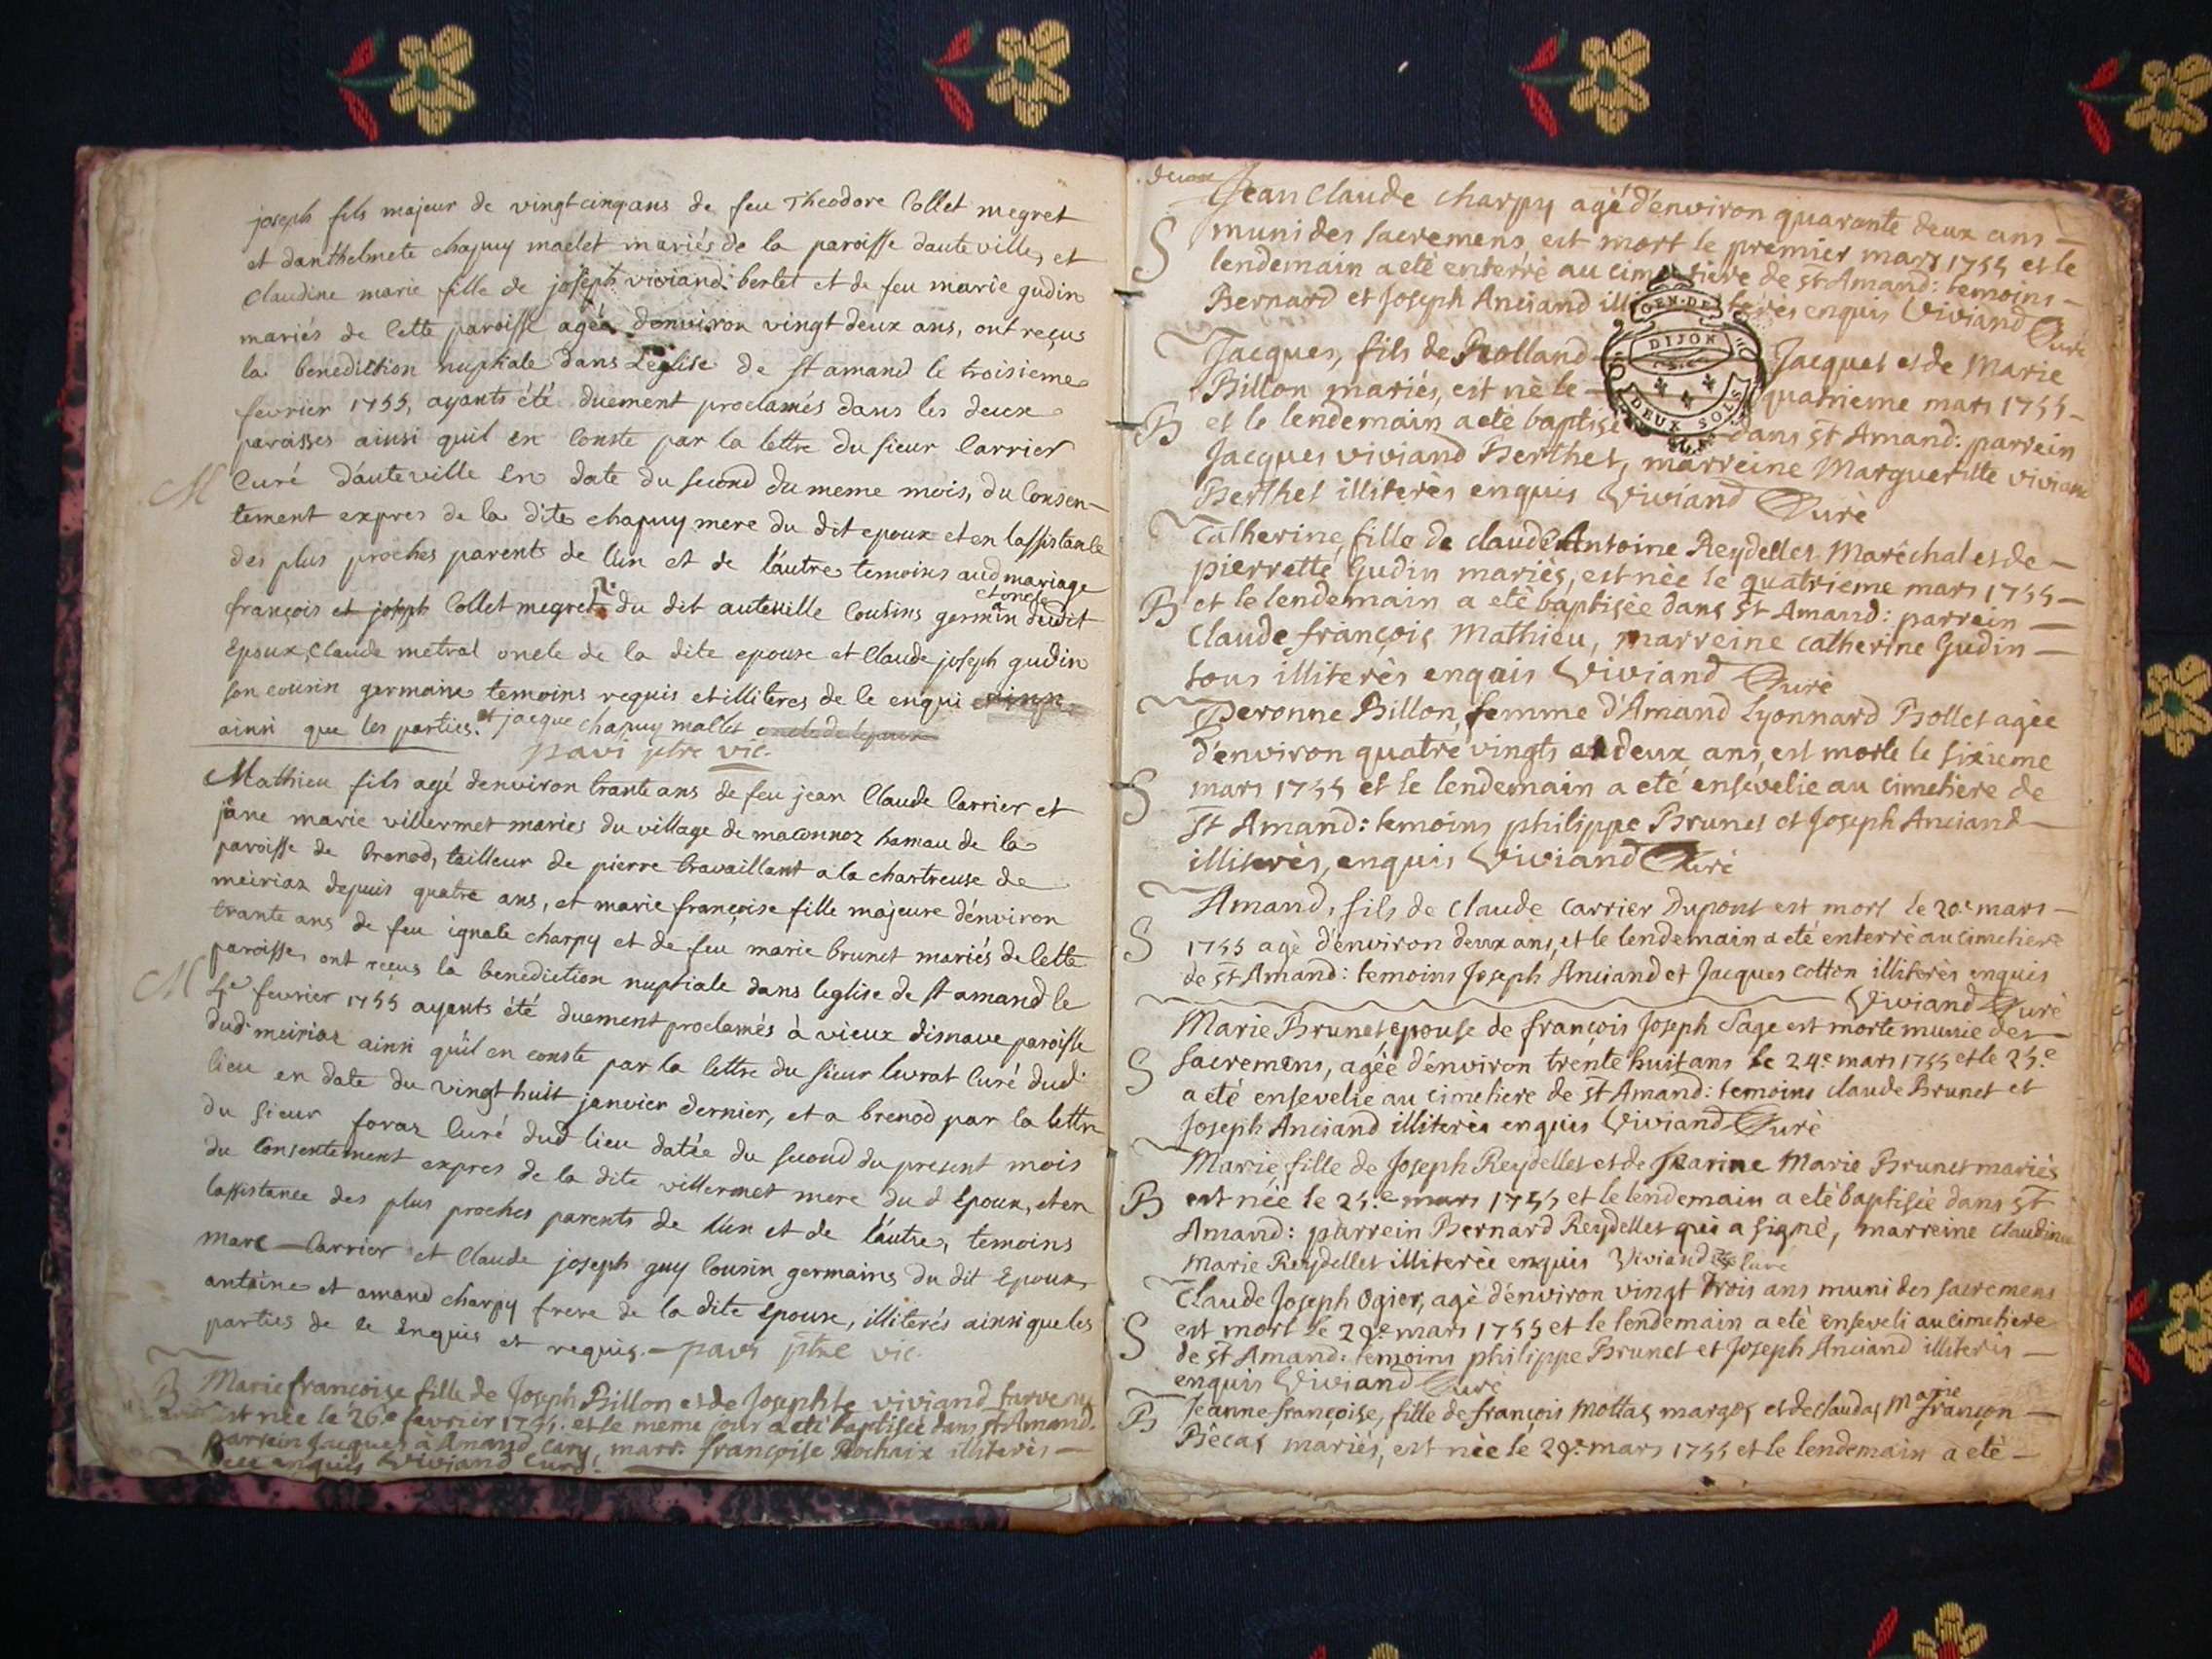 joseph fils majeur de vingt cinq ans de feu Theodore Collet megret
et danthelmete chapuy maclet mariés de la paroisse dauteville, et
Claudine marie fille de joseph viviand berlet et de feu marie gudin
mariés de cette paroisse agée denviron vingt deux ans, ont reçus
la benediction nuptiale dans Leglise de st amand le troisieme
fevrier 1755, ayants été duement proclamés dans les deux
paroisses ainsi quil en conste par la lettre du sieur Carrier
M
Curé d'auteville en date du second du meme mois, du Consen-
tement expres de la dite chapuy mere du dit epoux et en lassistance
des plus proches parents de l'un et de l'autre temoins aud mariage
françois et joseph Collet megret du dit auteville Cousins germain et oncle dudit
Epoux, Claude metral oncle de la dite epouse et Claude joseph gudin
son cousin germains temoins requis et illiteres de le enqui
ainsi que les parties. et jacque chapuy mallet oncle de lepoux
pavi ptre vic.
Mathieu fils agé denviron trante ans de feu jean Claude Carrier et
jane marie villermet maries du village de maconnoz hamau de la
paroisse de brenod, tailleur de pierre travaillant a la chartreuse de
meiriaz depuis quatre ans, et marie françoise fille majeure d'environ
trante ans de feu ignace charpy et de feu marie brunet mariés de cette
paroisse, ont reçus la benediction nuptiale dans leglise de st amand le
M
4e fevrier 1755 ayants été duement proclamés à vieux disnave paroisse
dud meiriaz ainsi qu'il en conste par la lettre du sieur levrat Curé dud
lieu en date du vingt huit janvier dernier, et a brenod par la lettre
du sieur foraz Curé dud lieu datée du second du present mois
du Consentement expres de la dite villermet mere du d Epoux, et en
lassistance des plus proches parents de l'un et de l'autre, temoins
marc Carrier et Claude joseph guy Cousin germains du dit Epoux
antoine et amand charpy frere de la dite epouse, illiterés ainsi que les
parties de ce enquis et requis. pavi ptre vic.
B
Marie françoise fille de Joseph Billon et de Josephte viviand
est née le 26e fevrier 1755. et le meme jour a eté baptisée dans st Amand.
parrein Jacques à Amand Cary, marr. françoise Rochaix illiterès
enquis Viviand Curé.
deux
Jean Claude charpy agé d'environ quarante deux ans
S
muni des sacremens, est mort le premier mars 1755 et le
lendemain a eté enterré au cimetiere de st Amand: temoins
Bernard et Joseph Anciand illiterès enquis Viviand Curé
GEN. DE DIJON
DEUX SOLS
Jacques, fils de Rolland Jacquet et de Marie
Billon mariés, est né le quatrieme mars 1755
B
et le lendemain a eté baptisé dans st Amand: parrein
Jacques viviand Berthet, marreine Marguerite viviand
Berthet illiterès enquis Viviand Curé
Catherine, fille de claude Antoine Reydellet Maréchal et de
pierrette Gudin mariés, est née le quatrieme mars 1755
B
et le lendemain a eté baptisée dans st Amand: parrein
Claude françois Mathieu, marreine catherine Gudin
tous illiterès enquis Viviand Curé
Peronne Billon, femme d'Amand Lyonnard Bollet agée
d'environ quatre vingts et deux ans, est morte le sixieme
S
mars 1755 et le lendemain a eté ensevelie au cimetiere de
st Amand: temoins philippe Brunet et Joseph Anciand
illiterès, enquis Viviand Curé
Amand, fils de claude Carrier Dupont est mort le 20e mars
S
1755 agé d'environ deux ans, et le lendemain a eté enterré au cimetiere
de st Amand: temoins Joseph Anciand et Jacques cotton illiterès enquis
Viviand Curé
Marie Brunet, epouse de françois Joseph Sage est morte munie des
S
sacremens, agée d'environ trente huit ans le 24e mars 1755 et le 25e
a eté ensevelie au cimetiere de st Amand: temoins claude Brunet et
Joseph Anciand illiterès enquis Viviand Curé
Marie, fille de Joseph Reydellet et de Marie Brunet mariés
B
est née le 25e mars 1755 et le lendemain a eté baptisée dans st
Amand: parrein Bernard Reydellet qui a signé, marreine claudine
Marie Reydellet illiterée enquis Viviand Curé
Claude Joseph Ogier, agé d'environ vingt trois ans muni des sacremens
S
est mort le 29e mars 1755 et le lendemain a eté enseveli au cimetiere
de st Amand: temoins philippe Brunet et Joseph Anciand illiterès
enquis Viviand Curé
Jeanne françoise, fille de françois Mottas margos et de claudas Marie françon
B
Bécas mariés, est née le 29e mars 1755 et le lendemain a eté